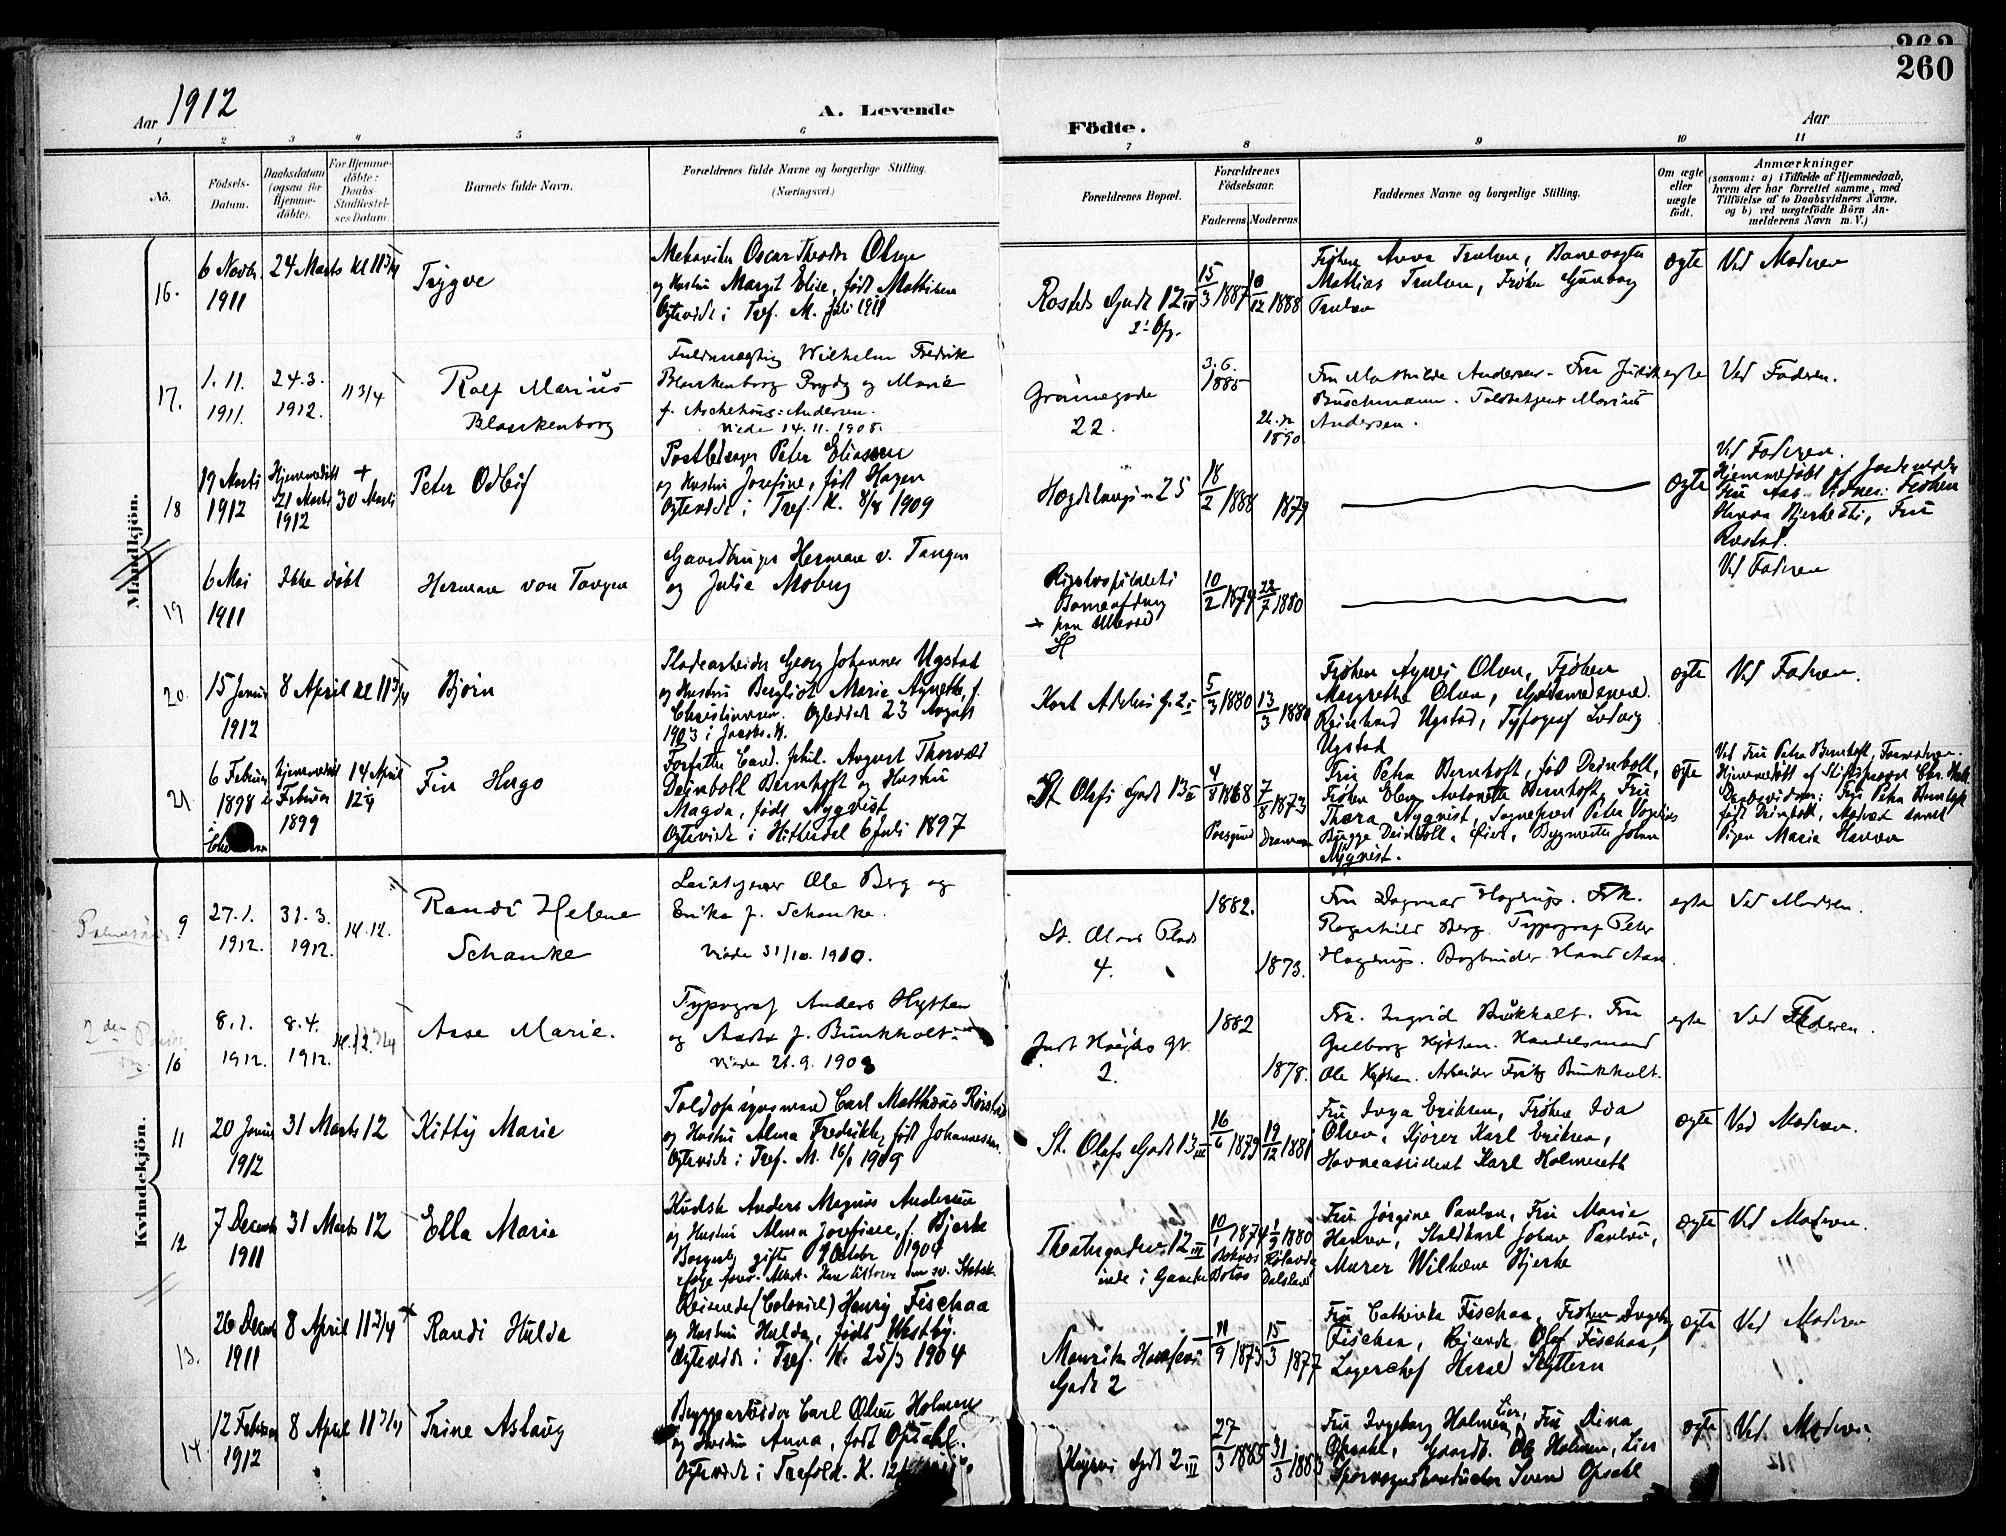 262
260
Aar 1912
A. Levende
Födte.
Aar
1 2 3 4 5 6 7 8 9 10 11
No.
Födsels-Datum.
Daabsdatum (ogsaa for Hjemmedöbte).
For Hjemmedöbte: Daabs-Stadfæstelses Datum.
Barnets fulde Navn.
Forældrenes fulde Navne og borgerlige Stilling.
(Næringsvei.)
Forældrenes Bopæl.
Forældrenes Födselsaar.
Faderens. Moderens.
Faddernes Navne og borgerlige Stilling.
Om ægte eller uægte födt.
Anmærkninger
(saasom: a) i Tilfælde af Hjemmedaab, hvem der har forrettet samme, med Tilföielse af to Daabsvidners Navne, og b) ved uægtefödte Börn Anmelderens Navn m. V.)
Mandkjön.
16.
6 Novbr 1911
24 Marts kl 11 3/4
Trygve
Oscar Theodor Olsen
og Hustru Margit Elise, født Mathisen
Ægteviet i Tref. M. Juli 1911
12 III
15/3 1887
1888
Frøken Anna Trulsen, Banevogter
Mathias Trulsen, Frøken Gunborg
Trulsen
ægte
Ved Moderen
17.
1.11. 1911.
24.3. 1912.
11 3/4
Rolf Marius
Blankenborg
Fuldmægtig Wilhelm Fredrik
Blankenborg Prydz og Marie
f. Aschehoug-Andersen.
Viede 14.11.1908.
Grønnegade
22.
3.6. 1885
1890
Fru Mathilde Andersen. Fru Judith
Buschmann. Toldbetjent Marius
Andersen.
egte
Ved Faderen.
18
19 Marts 1912
Hjemmedøbt 21 Marts 1912
+ 30 Marts
Peter Odleif
Postbetjent Peter Eliassen
og Hustru Josefine, født Hagen
Ægteviet i Tref. K. 8/8 1909
Hegdehaugsv 25
18/2 1888
1879
ægte
Ved Faderen.
Hjemmedøbt af Jordemoder
Fru Aas. Vidner: Frøken
Hanna Bjerkesti, Fru
Rustad.
19
6 Mai 1911
Ikke døbt
Herman von Tangen
Herman v. Tangen
og Julie Moberg
Rigshospitalets
Barneafdeling
10/2 1874
22/7 1880
Ved Faderen
20.
15 Januar 1912
8 April kl 11 3/4
Bjørn
Pladearbeider Georg Johannes Ugstad
og Hustru Bergliot Marie Agnethe, f.
Christiansen. Ægteviet 23 August
1903 i Jacobs. K.
Kort Adelers g. 2 I
5/3 1880
13/3 1880
Frøken Agnes Olsen, Frøken
Margrethe Olsen, Gjørtlersvend
Reinhard Ugstad, Typograf Ludvig
Ugstad
ægte
Ved Faderen.
21
6 Februar 1898
Hjemmedøbt Februar 1899
14 April 12 1/4
Fin Hugo
Forfatter Cand. phil. August Thorvald
Deinboll Bernhoft og Hustru
Magda, født Nyqvist
Ægteviede i Hitterdal 6 Juli 1897
St Olafs Gade 13 II
4/8 1868
Porsgrund
7/8 1873
Drammen
Fru Petra Bernhoft, født Deinboll,
Frøken Eleg. Antonette Bernhoft, Fru
Thora Nyqvist, Sogneprest Peter Vogelius
Bugge Deinboll, Eier, Bygmester Johan
Nyqvist.
ægte
Ved Fru Petra Bernhoft, Farmoderen.
Hjemmedøbt af Stiftsprovst Chr. Hall
Daabsvidner: Fru Petra Bernhoft
født Deinboll,
Pigen Maria Hansen
Kvindekjön.
9
27.1. 1912.
31.3. 1912.
kl. 12.
Randi Helene
Schanke
Ole Berg og
Erika f. Schanke.
Viede 31/10. 1910.
St. Olavs Plads
4.
1882.
1873.
Fru Dagmar Hagerup. Frk.
Ragnhild Berg. Typograf Peter
Hagerup. Bogbinder Hans Aan.
egte
Ved Moderen.
10
8.1. 1912.
8.4. 1912.
kl. 12 1/4
Aase Marie.
Typograf Anders Hytten
og Aasta f. Bunkholt
Viede 21.9.1908
Just Høeghs gt.
2.
1882
1878.
Frk. Ingrid Bunkholt. Fru
Gulborg Kjøhen. Handelsmand
Ole Kjøhen. Arbeider Fritz Bunkholt.
egte
Ved Faderen.
11
20 Januar 1912
31 Marts 12
Kitty Marie
Toldopsynsmand Carl Matthæus Rørstad
og Hustru Alma Fredrikke, født Johannessen.
Ægteviede i Tref. M. 1909
St. Olafs Gade 13 III
16/6 1879
19/12 1881
Fru Inga Eriksen, Frøken Ida
Olsen, Kjører Karl Eriksen,
Havneassistent Karl Holmseth
ægte
Ved Moderen.
12
7 Decembr 1911
31 Marts 12
Ella Marie
Kudsk Anders Magnus Andersen
og Hustru Alma Josefine, f. Bjerke
Borgerlig gifte 9 October 1904
Theatergaden 12 III
inde i Gaarden
10/1 1874
1880
Fru Jørgine Paulsen, Fru Marie
Hansen, Staldkarl Johan Paulsen,
Murer Wilhelm Bjerke
ægte
Ved Moderen.
13.
26 Decbr 1911
8 April 11 3/4
Randi Hulda
Reisende (Colonial) Henry Fischaa
og Hustru Hulda, født Westby.
Ægteviede i Tref. K. 25/3 1904
Gade 2
11/9 1873
15/3 1877
Fru Cathinka Fischaa, Frøken Ingeborg
Fischaa, Reisende Olaf Fischaa,
Lagerchef Harald Skyttern
ægte
Ved Moderen
14
12 Februar 1912
8 April 11 3/4
Trine Aslaug
Bryggearbeider Carl Olsen Holmen
og Hustru Anna, født Opsahl.
Ægteviede i Trefold. K.
Gade 2 II
27/3 1885
31/3 1883
Fru Ingeborg Holmen, Lier, Fru Dina
Opsahl, Gaardb. Ole Holmen, Lier
Sporvognskonduktør Svend Opsahl
ægte
Ved Moderen.